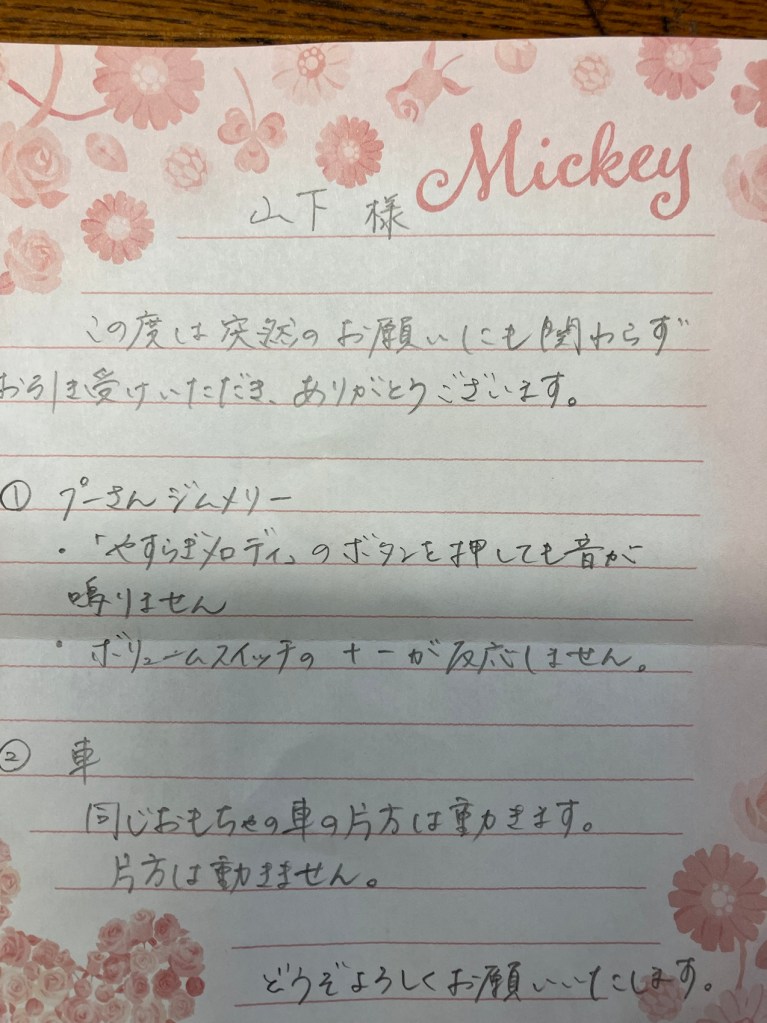 Mickey
山下 様
この度は突然のお願いにも関わらず
お引き受けいただき、ありがとうございます。
① プーさんジムメリー
・「やすらぎメロディ」のボタンを押しても音が
鳴りません
・ボリュームスイッチの + - が反応しません。
② 車
同じおもちゃの車の片方は動きます。
片方は動きません。
どうぞよろしくお願いいたします。